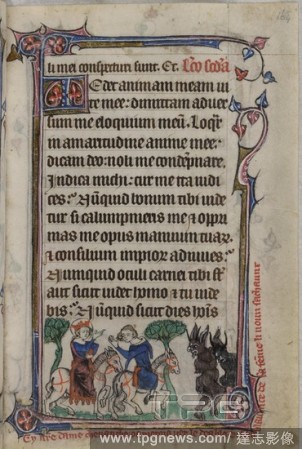 li mei conspectui sunt. Er. Lco scda
Tedet animam meam ui
te mee: dimittam aduer
sum me eloquium meũ. Loqr̃
in amaritudine anime mee:
dicam deo: noli me condẽpnare.
Indica michi: cur me ita iudi
ces: Nũquid bonum tibi uide
tur si calumpnieris me & oppri
mas me opus manuum tuaꝝ:
& consilium impioꝝ adiuues:
Nũquid oculi carnei tibi sũt
aut sicut uidet homo & tu uide
bis: Nũquid sicut dies hoĩs
www.tpgnews.com/ 達志影像